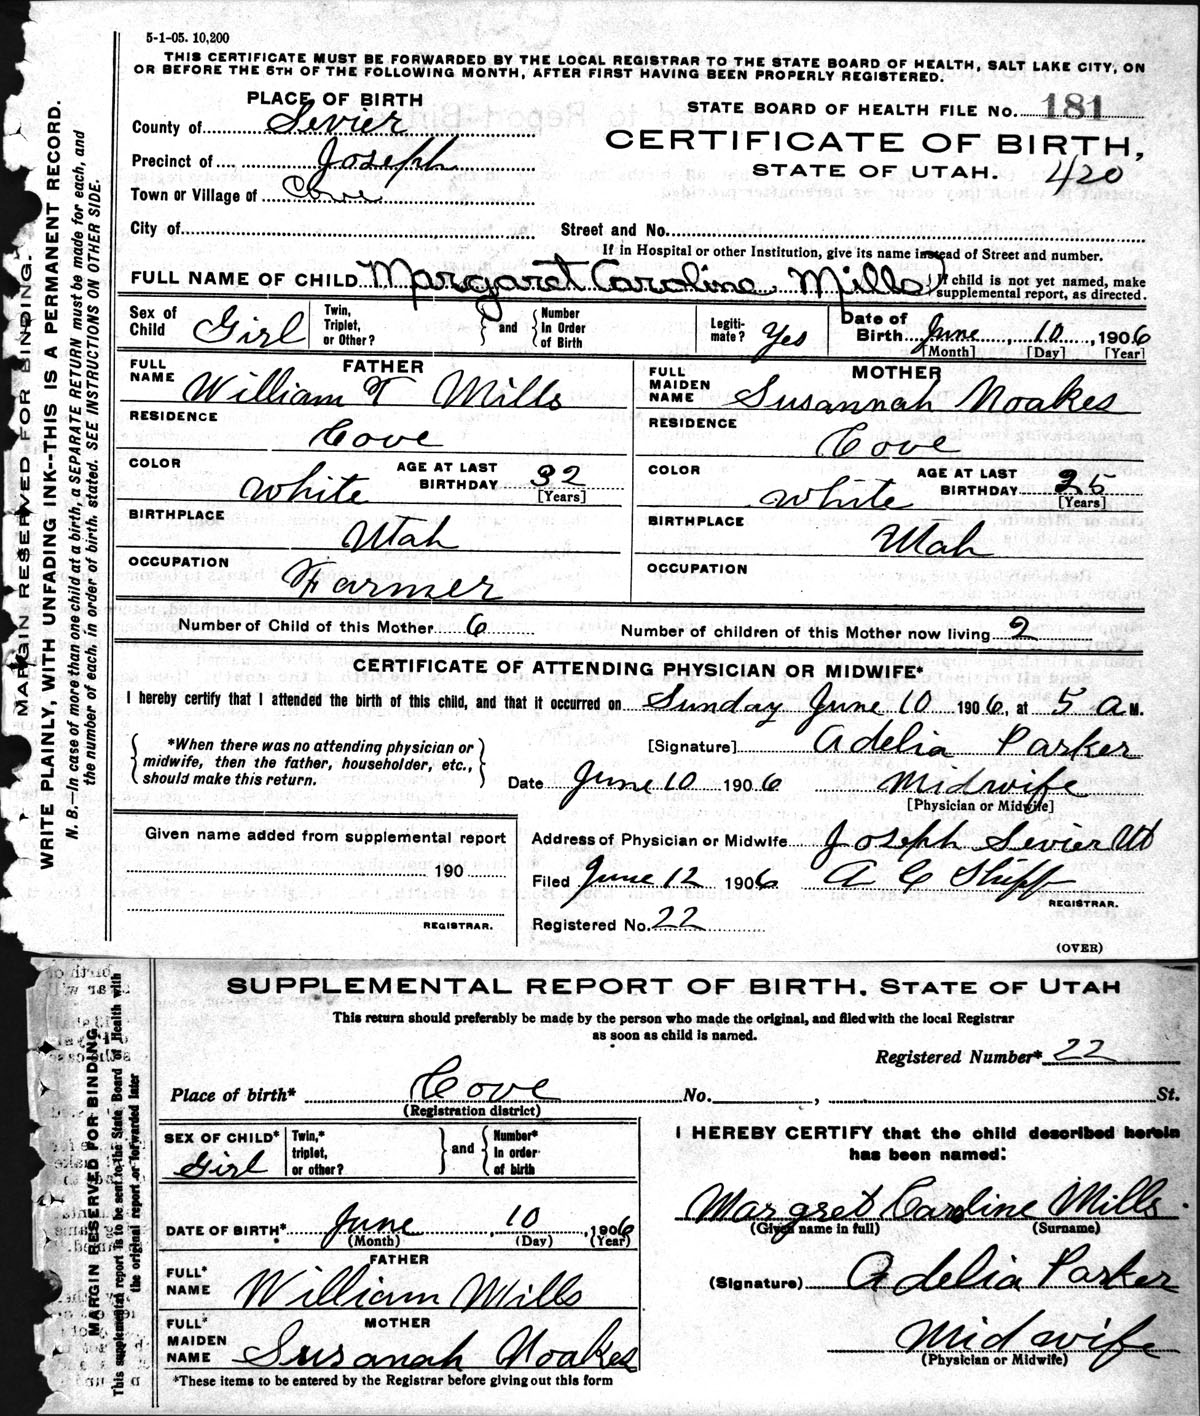 5-1-05. 10,200
THIS CERTIFICATE MUST BE FORWARDED BY THE LOCAL REGISTRAR TO THE STATE BOARD OF HEALTH, SALT LAKE CITY, ON
OR BEFORE THE 5TH OF THE FOLLOWING MONTH, AFTER FIRST HAVING BEEN PROPERLY REGISTERED.
PLACE OF BIRTH
STATE BOARD OF HEALTH FILE No. 181
County of Sevier
CERTIFICATE OF BIRTH,
Precinct of Joseph
STATE OF UTAH. 420
Town or Village of Cove
City of
Street and No.
If in Hospital or other Institution, give its name instead of Street and number.
FULL NAME OF CHILD Margaret Caroline Mills
If child is not yet named, make
supplemental report, as directed.
Sex of Child Girl
Twin, Triplet, or Other?
and
Number In Order of Birth
Legitimate? Yes
Date of Birth June 10 1906
[Month] [Day] [Year]
FATHER
FULL NAME William T Mills
MOTHER
FULL MAIDEN NAME Susannah Noakes
RESIDENCE Cove
RESIDENCE Cove
COLOR White
AGE AT LAST BIRTHDAY 32
[Years]
COLOR White
AGE AT LAST BIRTHDAY 25
[Years]
BIRTHPLACE Utah
BIRTHPLACE Utah
OCCUPATION Farmer
OCCUPATION
Number of Child of this Mother 6
Number of children of this Mother now living 2
CERTIFICATE OF ATTENDING PHYSICIAN OR MIDWIFE*
I hereby certify that I attended the birth of this child, and that it occurred on Sunday June 10 1906, at 5 A M.
*When there was no attending physician or
midwife, then the father, householder, etc.,
should make this return.
[Signature] Adelia Parker
Date June 10 1906 Midwife
[Physician or Midwife]
Given name added from supplemental report
190
REGISTRAR.
Address of Physician or Midwife Joseph Sevier Ut
Filed June 12 1906 A C Shipp
REGISTRAR.
Registered No. 22
(OVER)
MARGIN RESERVED FOR BINDING.
WRITE PLAINLY, WITH UNFADING INK--THIS IS A PERMANENT RECORD.
N. B.—In case of more than one child at a birth, a SEPARATE RETURN must be made for each, and
the number of each, in order of birth, stated. SEE INSTRUCTIONS ON OTHER SIDE.
SUPPLEMENTAL REPORT OF BIRTH, STATE OF UTAH
This return should preferably be made by the person who made the original, and filed with the local Registrar
as soon as child is named.
Registered Number* 22
Place of birth* Cove No. , St.
(Registration district)
SEX OF CHILD* Girl
Twin,* triplet, or other?
and
Number* In order of birth
DATE OF BIRTH* June 10, 1906
(Month) (Day) (Year)
FATHER
FULL* NAME William Mills
MOTHER
FULL* MAIDEN NAME Susanah Noakes
*These items to be entered by the Registrar before giving out this form
I HEREBY CERTIFY that the child described herein
has been named:
Margret Caroline Mills
(Given name in full) (Surname)
(Signature) Adelia Parker
Midwife
(Physician or Midwife)
MARGIN RESERVED FOR BINDING
This supplemental report is to be sent to the State Board of Health with
the original report or forwarded later